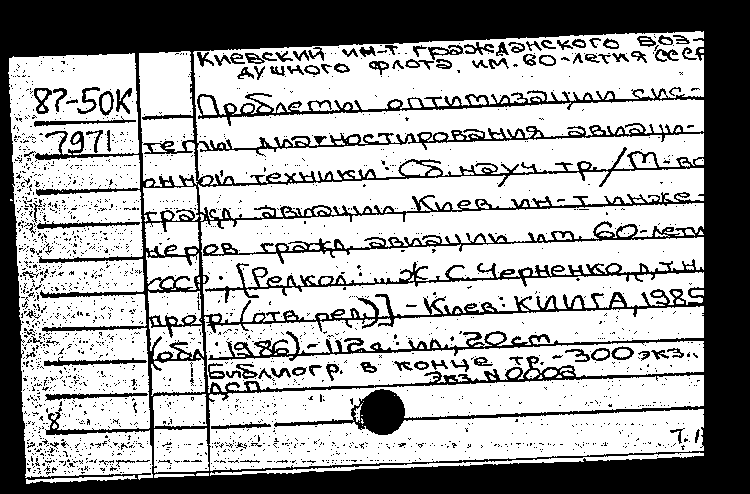 Киевский ин-т гражданского воз-
душного флота им. 60-летия СССР
87-50К
7971
Проблемы оптимизации сис-
темы диагностирования авиаци-
онной техники: Сб. науч. тр. / М-во
гражд. авиации, Киев. ин-т инже-
неров гражд. авиации им. 60-лети
СССР; [Редкол.: ... Ж.С. Черненко, д.т.н.
проф. (отв. ред.)]. - Киев: КИИГА, 1985
(обл.: 1986) - 112 с.: ил.; 20 см.
Библиогр. в конце тр. - 300 экз..
ДСП. Экз. N 0008
8